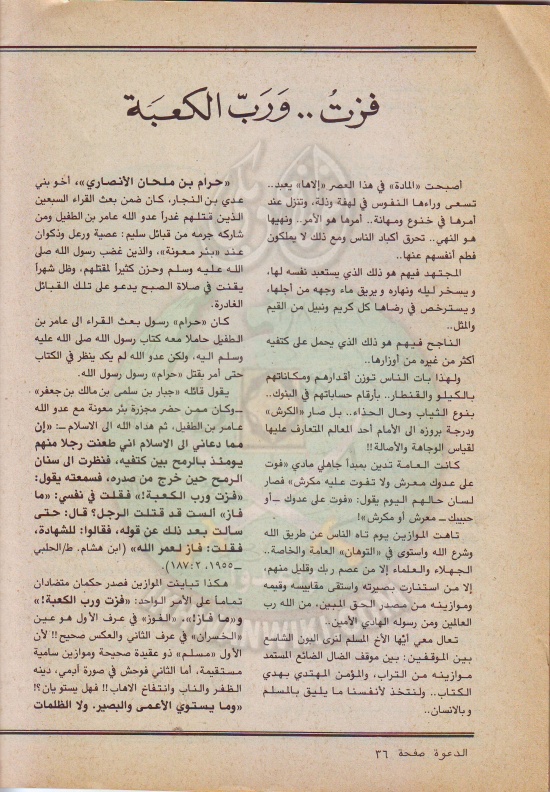 فزتُ .. وَرَبّ الكعبَة
أصبحت «المادة» في هذا العصر «إلاها» يعبد..
تسعى وراءها النفوس في لهفة وذلة، وتنزل عند
أمرها في خنوع ومهانة.. أمرها هو الأمر.. ونهيها
هو النهي.. تحرق أكباد الناس ومع ذلك لا يملكون
فطم أنفسهم عنها..
المجتهد فيهم هو ذلك الذي يستعبد نفسه لها،
ويسخر ليله ونهاره ويريق ماء وجهه من أجلها،
ويسترخص في رضاها كل كريم ونبيل من القيم
والمثل..
الناجح فيهم هو ذلك الذي يحمل على كتفيه
أكثر من غيره من أوزارها..
ولهذا بات الناس توزن أقدارهم ومكاناتهم
بالكيلو والقنطار.. بأرقام حساباتهم في البنوك..
بنوع الثياب وحال الحذاء.. بل صار «الكرش»
ودرجة بروزه الى الأمام أحد المعالم المتعارف عليها
لقياس الوجاهة والأصالة!!
كانت العامة تدين بمبدأ جاهلي مادي «فوت
على عدوك معرش ولا تفوت عليه مكرش» فصار
لسان حالهم اليوم يقول: «فوت على عدوك – أو
حبيبك – معرش أو مكرش»!
تاهت الموازين يوم تاه الناس عن طريق الله
وشرع الله واستوى في «التوهان» العامة والخاصة..
الجهلاء والعلماء إلا من عصم ربك وقليل منهم،
إلا من استنارت بصيرته واستقى مقاييسه وقيمه
وموازينه من مصدر الحق المبين، من الله رب
العالمين ومن رسوله الهادي الأمين..
تعال معي أيّها الأخ المسلم لنرى البون الشاسع
بين الموقفين: بين موقف الضال الضائع المستمد
موازينه من التراب، والمؤمن المهتدي بهدي
الكتاب.. ولنتخذ لأنفسنا ما يليق بالمسلم
وبالانسان..
«حرام بن ملحان الأنصاري»، أخو بني
عدي بن النجار، كان ضمن بعث القراء السبعين
الذين قتلهم غدراً عدو الله عامر بن الطفيل ومن
شاركه جرمه من قبائل سليم: عصية ورعل وذكوان
عند «بئر معونة»، والذين غضب رسول الله صلى
الله عليه وسلم وحزن كثيراً لمقتلهم، وظل شهراً
يقنت في صلاة الصبح يدعو على تلك القبائل
الغادرة.
كان «حرام» رسول بعث القراء الى عامر بن
الطفيل حاملا معه كتاب رسول الله صلى الله عليه
وسلم اليه، ولكن عدو الله لم يكد ينظر في الكتاب
حتى أمر بقتل «حرام» رسول رسول الله.
يقول قاتله «جبار بن سلمى بن مالك بن جعفر»
–وكان ممن حضر مجزرة بئر معونة مع عدو الله
عامر بن الطفيل، ثم هداه الله الى الاسلام –: «إن
مما دعاني الى الاسلام اني طعنت رجلا منهم
يومئذ بالرمح بين كتفيه، فنظرت الى سنان
الرمح حين خرج من صدره، فسمعته يقول:
«فزت ورب الكعبة!» فقلت في نفسي: «ما
فاز» ألست قد قتلت الرجل؟ قال: حتى
سألت بعد ذلك عن قوله، فقالوا: للشهادة،
فقلت: فاز لعمر الله» (ابن هشام. ط/الحلبي
– ١٩٥٥، ١٨٧:٢).
هكذا تباينت الموازين فصدر حكمان متضادان
تماماً على الأمر الواحد: «فزت ورب الكعبة!»
و«ما فاز!»، «الفوز» في عرف الأول هو عين
«الخسران» في عرف الثاني والعكس صحيح!! لأن
الأول «مسلم» ذو عقيدة صحيحة وموازين سامية
مستقيمة، أما الثاني فوحش في صورة آدمي، دينه
الظفر والناب وانتفاع الاهاب!! فهل يستويان؟!
«وما يستوي الأعمى والبصير. ولا الظلمات
الدعوة صفحة ٣٦